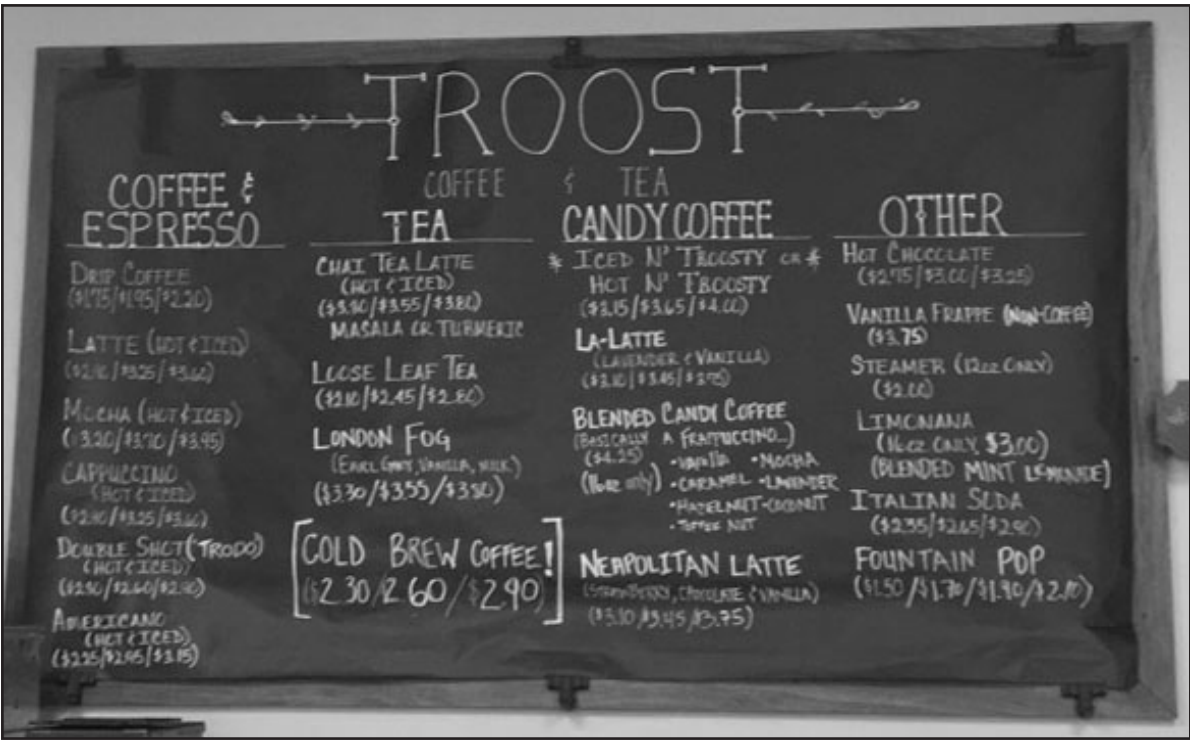 TROOST
COFFEE & TEA
COFFEE &
ESPRESSO
DRIP COFFEE
($1.75/$1.95/$2.20)
LATTE (HOT & ICED)
MOCHA (HOT & ICED)
($3.20/$3.70/$3.95)
CAPPUCCINO
(HOT & ICED)
DOUBLE SHOT (TRODO)
(HOT & ICED)
AMERICANO
(HOT & ICED)
TEA
CHAI TEA LATTE
(HOT & ICED)
($3.30/$3.55/$3.80)
MASALA OR TURMERIC
LOOSE LEAF TEA
($2.10/$2.45/$2.80)
LONDON FOG
(EARL GREY, VANILLA, MILK)
($3.30/$3.55/$3.80)
[COLD BREW COFFEE!
($2.30/2.60/$2.90)]
CANDY COFFEE
* ICED N' TROOSTY OR *
HOT N' TROOSTY
($3.15/$3.65/$4.00)
LA-LATTE
(LAVENDER & VANILLA)
($3.10/$3.45/$3.75)
BLENDED CANDY COFFEE
(BASICALLY A FRAPPUCCINO...)
($4.25) •VANILLA •MOCHA
(16oz only) •CARAMEL •LAVENDER
•HAZELNUT •COCONUT
•TOFFEE NUT
NEAPOLITAN LATTE
(STRAWBERRY, CHOCOLATE & VANILLA)
($3.10/$3.45/$3.75)
OTHER
HOT CHOCOLATE
($2.75/$3.00/$3.25)
VANILLA FRAPPE (NON-COFFEE)
($3.75)
STEAMER (12oz ONLY)
($2.00)
LIMONANA
(16oz ONLY, $3.00)
(BLENDED MINT LEMONADE)
ITALIAN SODA
($2.35/$2.65/$2.90)
FOUNTAIN POP
($1.50/$1.70/$1.90/$2.10)